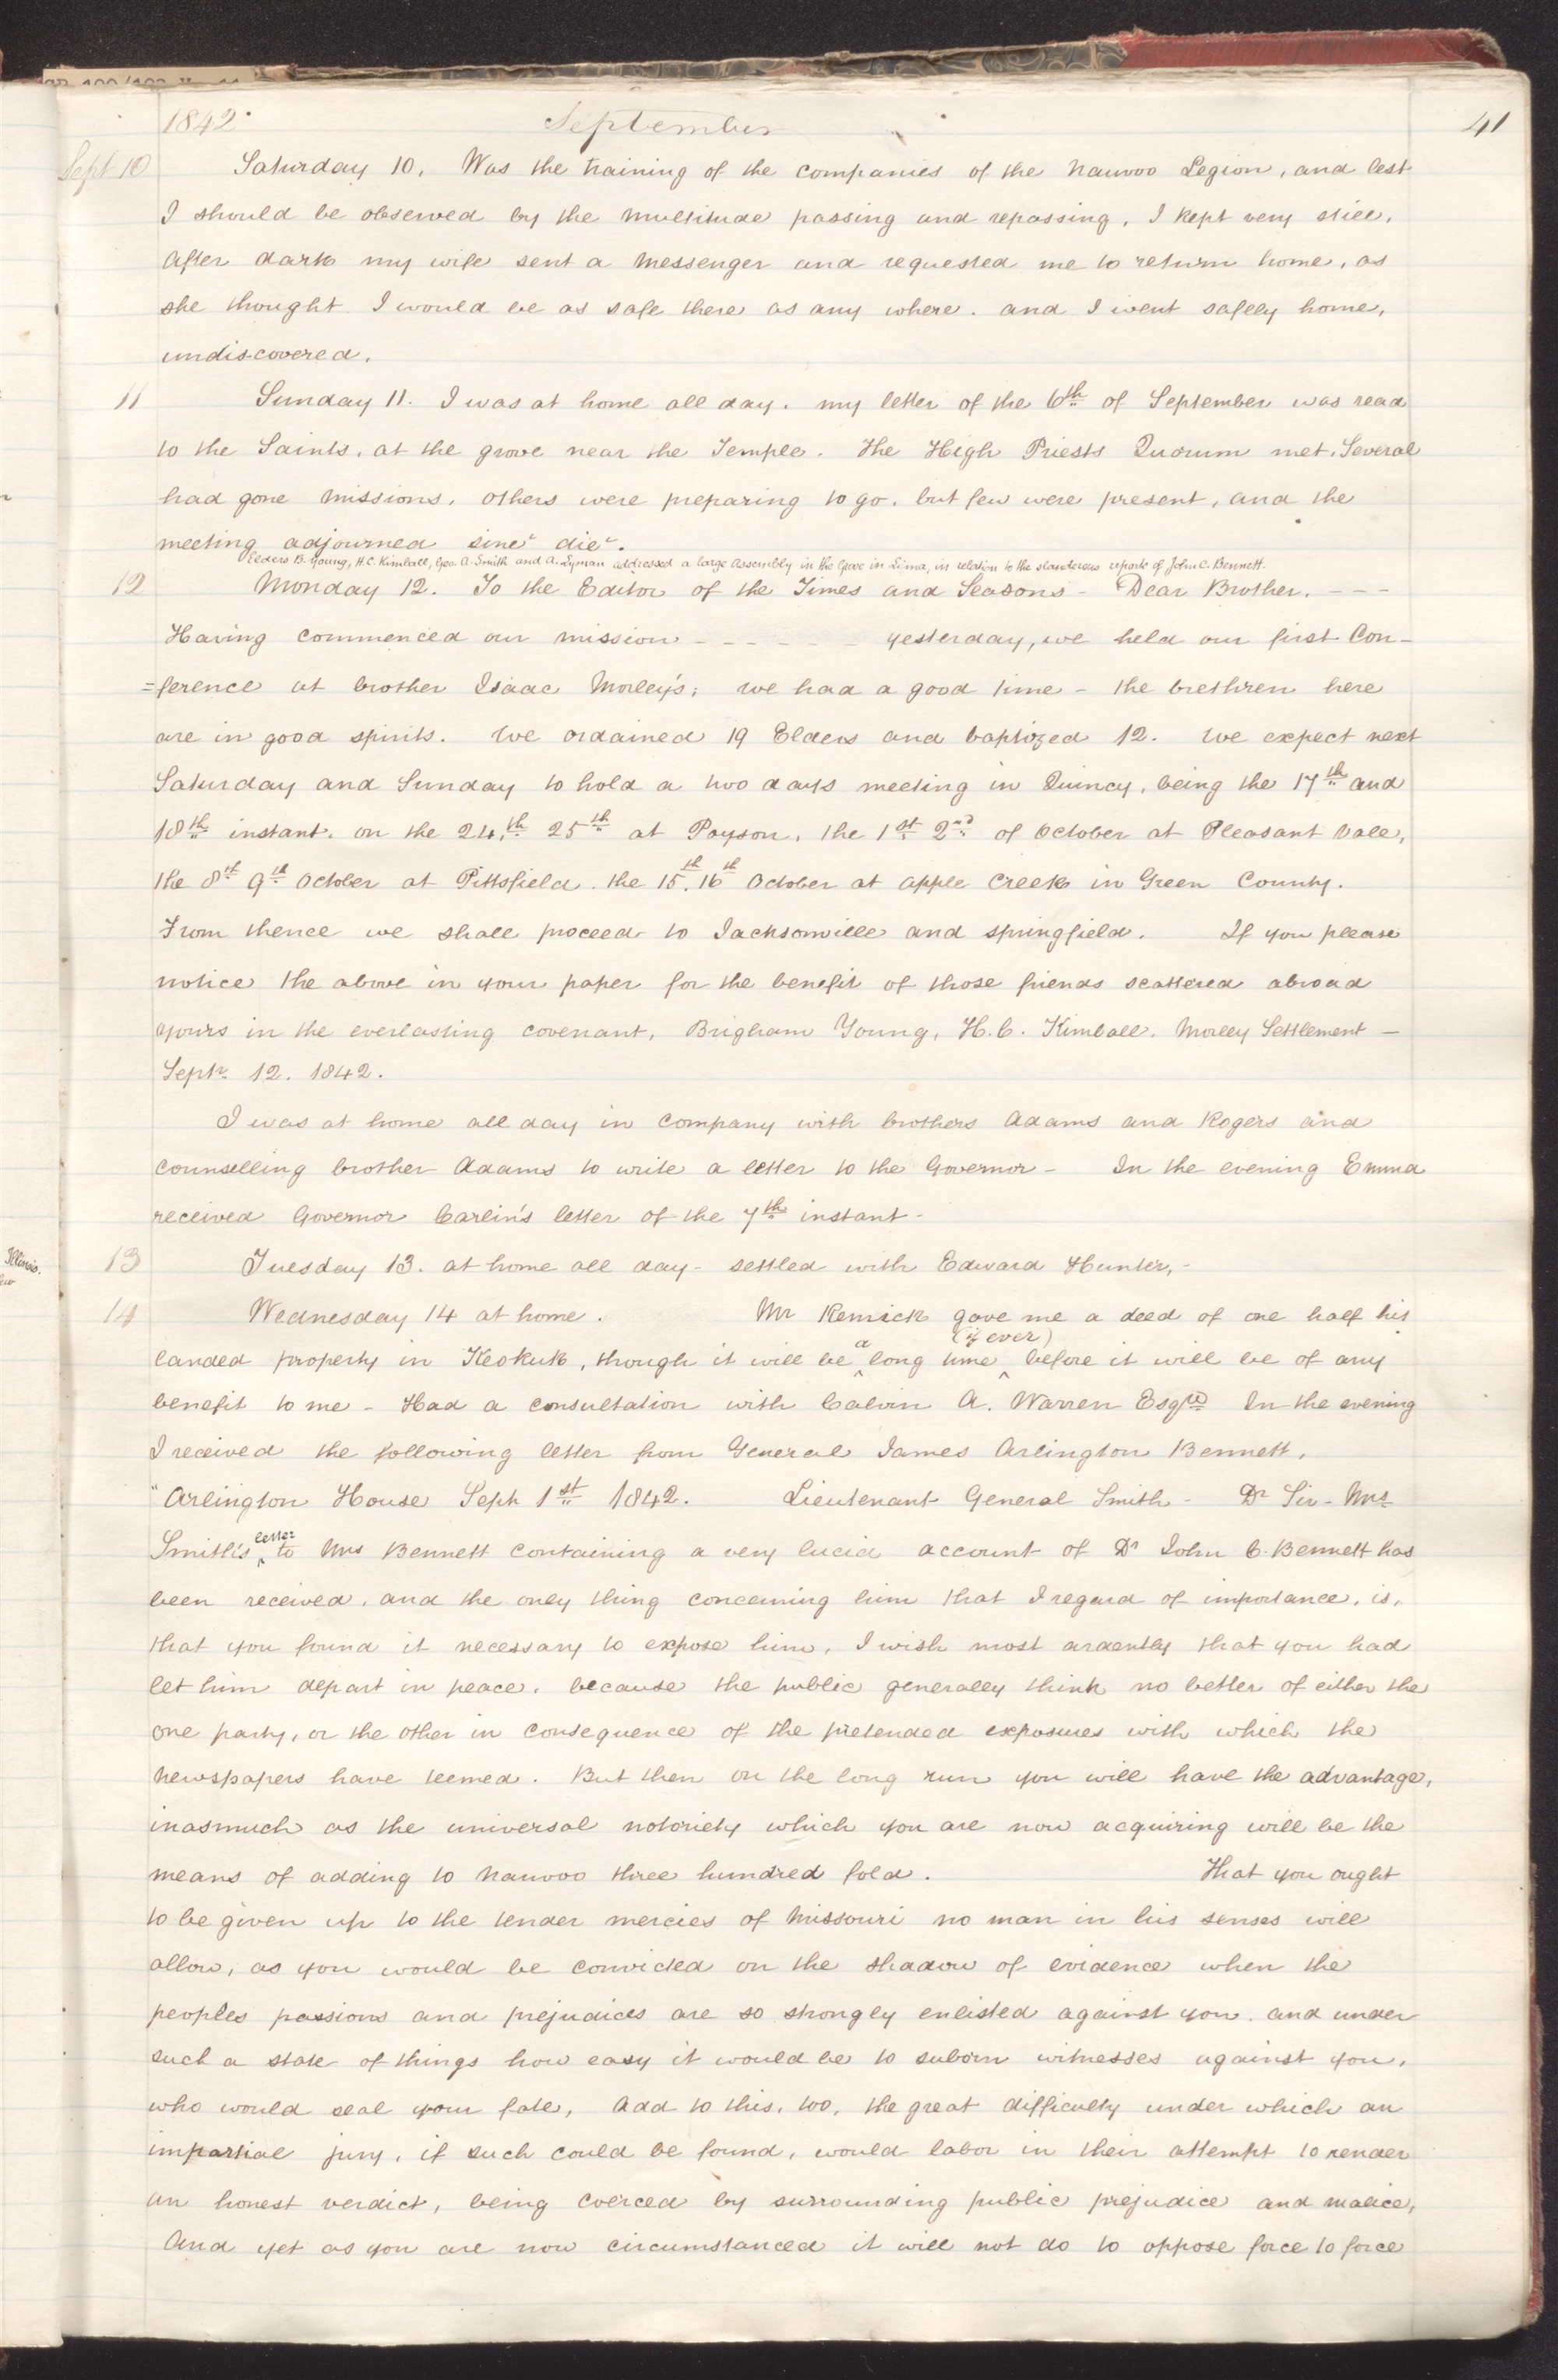 1842 September 41
Sept 10 Saturday 10, Was the training of the companies of the Nauvoo Legion, and lest
I should be observed by the multitude passing and repassing, I kept very still,
after dark my wife sent a messenger and requested me to return home, as
she thought I would be as safe there as any where. and I went safely home,
undiscovered.
11 Sunday 11. I was at home all day. my letter of the 6th of September was read
to the Saints, at the grove near the Temple. The High Priests Quorum met, Several
had gone missions, others were preparing to go. but few were present, and the
meeting adjourned sine die.
Elders B. Young, H. C. Kimball, Geo. A. Smith and A. Lyman addressed a large assembly in the Grove in Lima, in relation to the slanderous reports of John C. Bennett.
12 Monday 12. To the Editor of the Times and Seasons - Dear Brother. - - -
Having commenced our mission - - - - - - yesterday, we held our first Con-
=ference at brother Isaac Morley's; we had a good time - the brethren here
are in good spirits. We ordained 19 Elders and baptized 12. We expect next
Saturday and Sunday to hold a two days meeting in Quincy, being the 17th and
18th instant. on the 24,th 25th at Payson, the 1st 2nd of October at Pleasant Vale,
the 8th 9th October at Pittsfield. the 15th. 16th October at apple Creek in Green County.
From thence we shall proceed to Jacksonville and springfield. If you please
notice the above in your paper for the benefit of those friends scattered abroad
yours in the everlasting covenant, Brigham Young, H. C. Kimball. Morley Settlement -
Septr 12. 1842.
I was at home all day in company with brothers Adams and Rogers and
counselling brother Adams to write a letter to the Governor - In the evening Emma
received Governor Carlin's letter of the 7th instant -
13 Tuesday 13. at home all day - settled with Edward Hunter, -
14 Wednesday 14 at home. Mr Remick gave me a deed of one half his
landed property in Keokuk, though it will be a long time (if ever) before it will be of any
benefit to me - Had a consultation with Calvin A. Warren Esqre In the evening
I received the following letter from General James Arlington Bennett,
"Arlington House Sept 1st 1842. Lieutenant General Smith - Dr Sir - Mrs
Smith's letter to Mrs Bennett containing a very lucid account of Dr John C. Bennett has
been received, and the only thing concerning him that I regard of importance, is,
that you found it necessary to expose him, I wish most ardently that you had
let him depart in peace, because the public generally think no better of either the
one party, or the other in consequence of the pretended exposures with which the
newspapers have teemed. But then on the long run you will have the advantage,
inasmuch as the universal notoriety which you are now acquiring will be the
means of adding to Nauvoo three hundred fold. That you ought
to be given up to the tender mercies of Missouri no man in his senses will
allow, as you would be convicted on the shadow of evidence when the
peoples passions and prejudices are so strongly enlisted against you. and under
such a state of things how easy it would be to suborn witnesses against you,
who would seal your fate, Add to this, too, the great difficulty under which an
impartial jury, if such could be found, would labor in their attempt to render
an honest verdict, being coerced by surrounding public prejudice and malice,
And yet as you are now circumstanced it will not do to oppose force to force
Illinois.